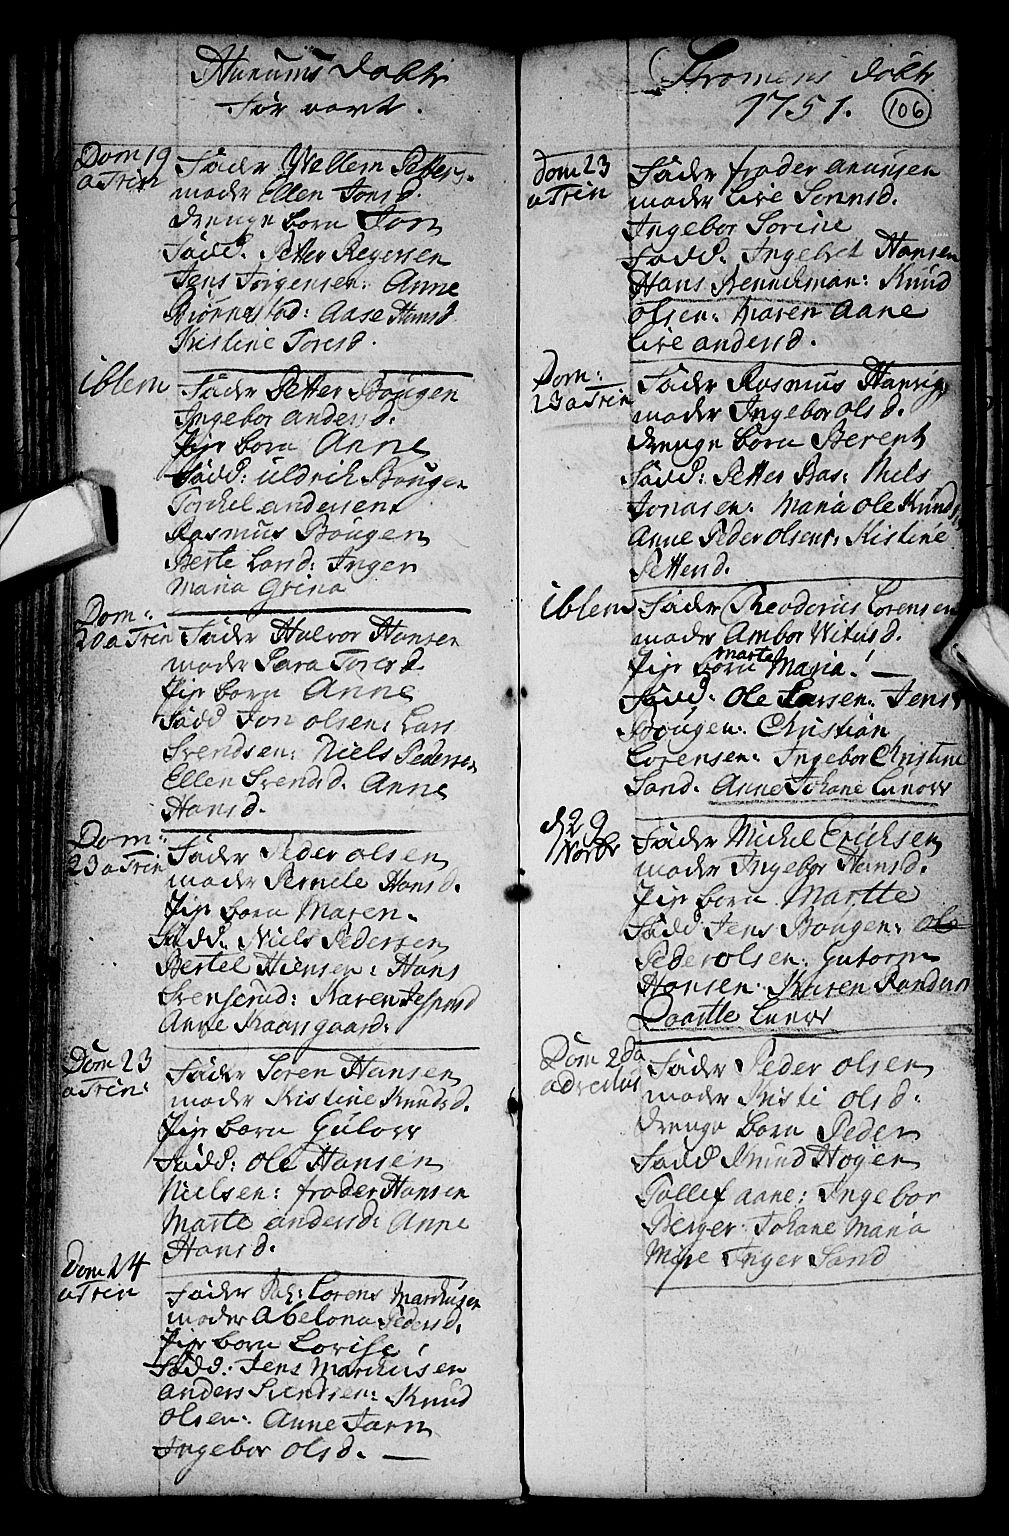 Hurums Dobte
før vart.
Dom 19
a Trin
Fader Wellem Petters.
moder Ellen Jonsd.
drenge born Jon
Fadd. Petter Regersen
Jens Jørgensen: Anne
Biørnestad: Aase Hansd
Kristine Toresd.
iblem
Fader Petter Bougen
Ingebor andersd.
Pige born Anne
Fadd: Uldrich Bougen
Torkel andersen
Rasmus Bougen
Berte Larsd: Inger
Maria Grina
Dom:
20 a Trin
Fader Halvor Hansen
moder Sara Toresd
Pige born Anne
Fadd Jon olsen: Lars
Svendsen: Niels Pedersen
Ellen Svendsd. Anne
Hansd.
Dom:
23 a Trin
Fader Peder olsen
moder Pernele Hansd.
Pige born Maren.
Fadd. Niels Pedersen
Bertel Hiensen: Hans
Svenserud: Karen Jespersd
Anne Kaarsgaard:
Dom 23
a Trin:
Fader Soren Hansen
moder Kristine Knudsd.
Pige born Gulovv
Fadd: Ole Hansen
Nielsen: frader Hansen
Marte andersd: Anne
Hansd.
Dom 24
a Trin
Fader Lorens Marchusen
moder Abelona Pedersd.
Pige born Lovise
Fadd: Jens Marchusen
anders Svendsen: Knud
olsen: Anne Jarn
Ingebor olsd. —
Stromens dobte
1751.
106
Dom 23
a Trin
Fader frader anunsen
moder Live Sonnsd.
Ingebor Sorine
Fadd. Ingebret Hansen
Hans Renneman: Knud
olsen: Karen Aane
Live andersd.
Dom:
23 a Trin
Fader Rasmus Hansig
moder Ingebor olsd.
drenge born Berent
Fadd: Petter Bas: Niels
Jonasen: Maria Ole Kunds
Anne Peder olsens: Kistine
Pettersd.
iblem
Fader Teoderus Lorensen
moder Ambor Witusd.
marte
Pige born Maria! —
Fadd. Ole Larsen: Jens
Bougen: Christian
Lorensen: Ingebor Christine
Sand. Anne Johane Lunovv
d. 29
Novbr
Fader Michel Erichsen
moder Ingebor Hansd.
Pige born Martte
Fadd Jens Bougen: ole
Peder olsen: Gutorm
Hansen: Karen Randun
Daartte Lunovv
Dom 2da
adventus
Fader Peder olsen
moder Kristi olsd:
drenge born Peder
Fadd Knud Høyen
Tollef aane: Ingebor
Berger Johane Maria
Inger Sand